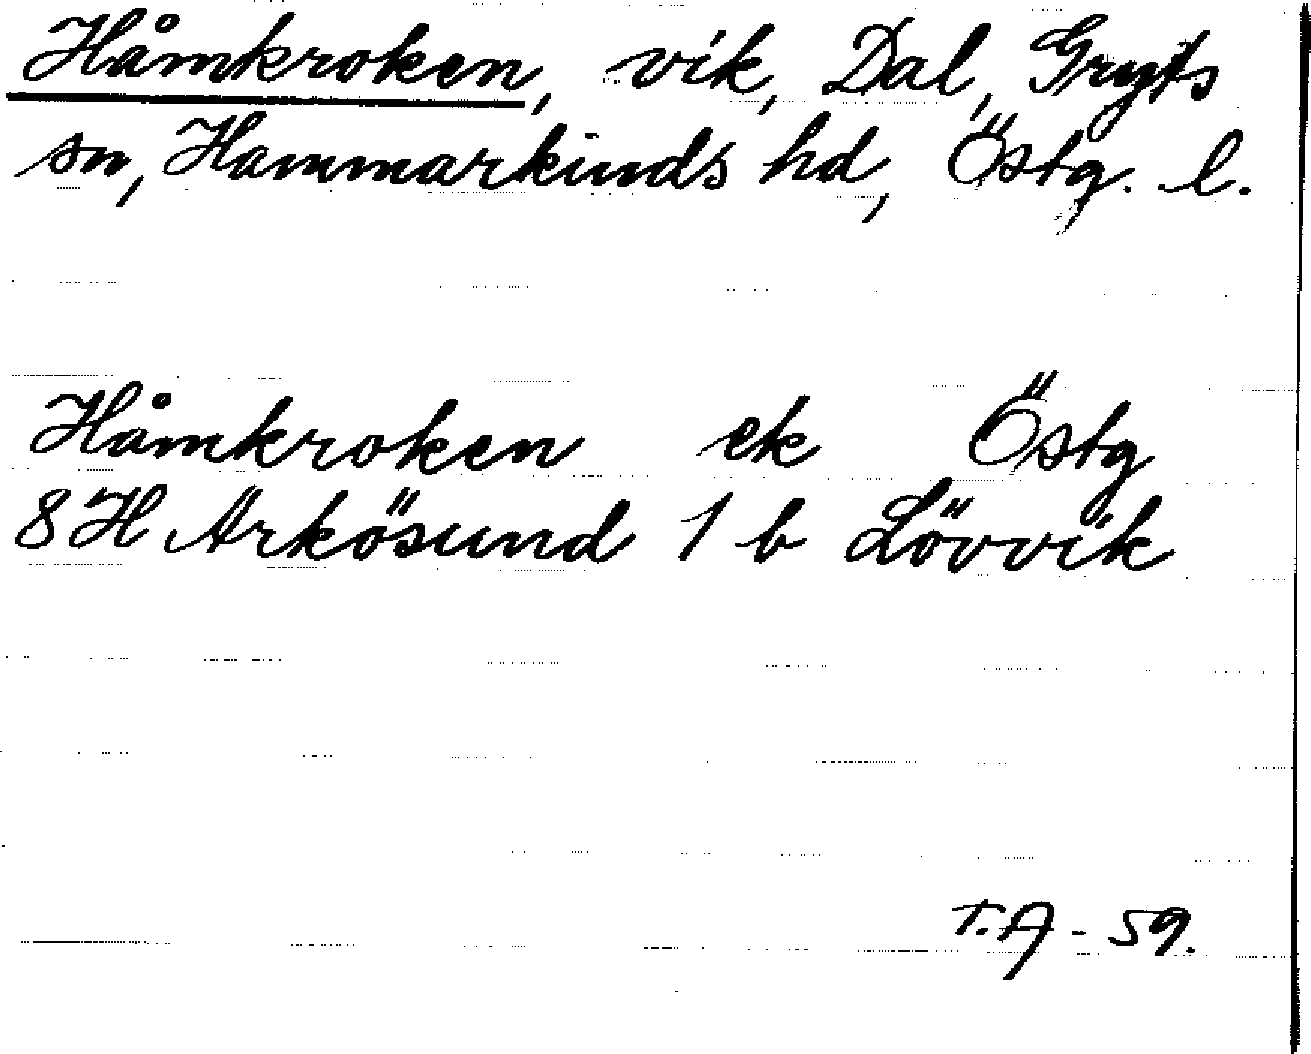 Håmkroken, vik, Dal, Gryts
sn, Hammarkinds hd, Östg. l.
Håmkroken ek Östg
8 H Arkösund 1 b Lövvik
T.A - 59.